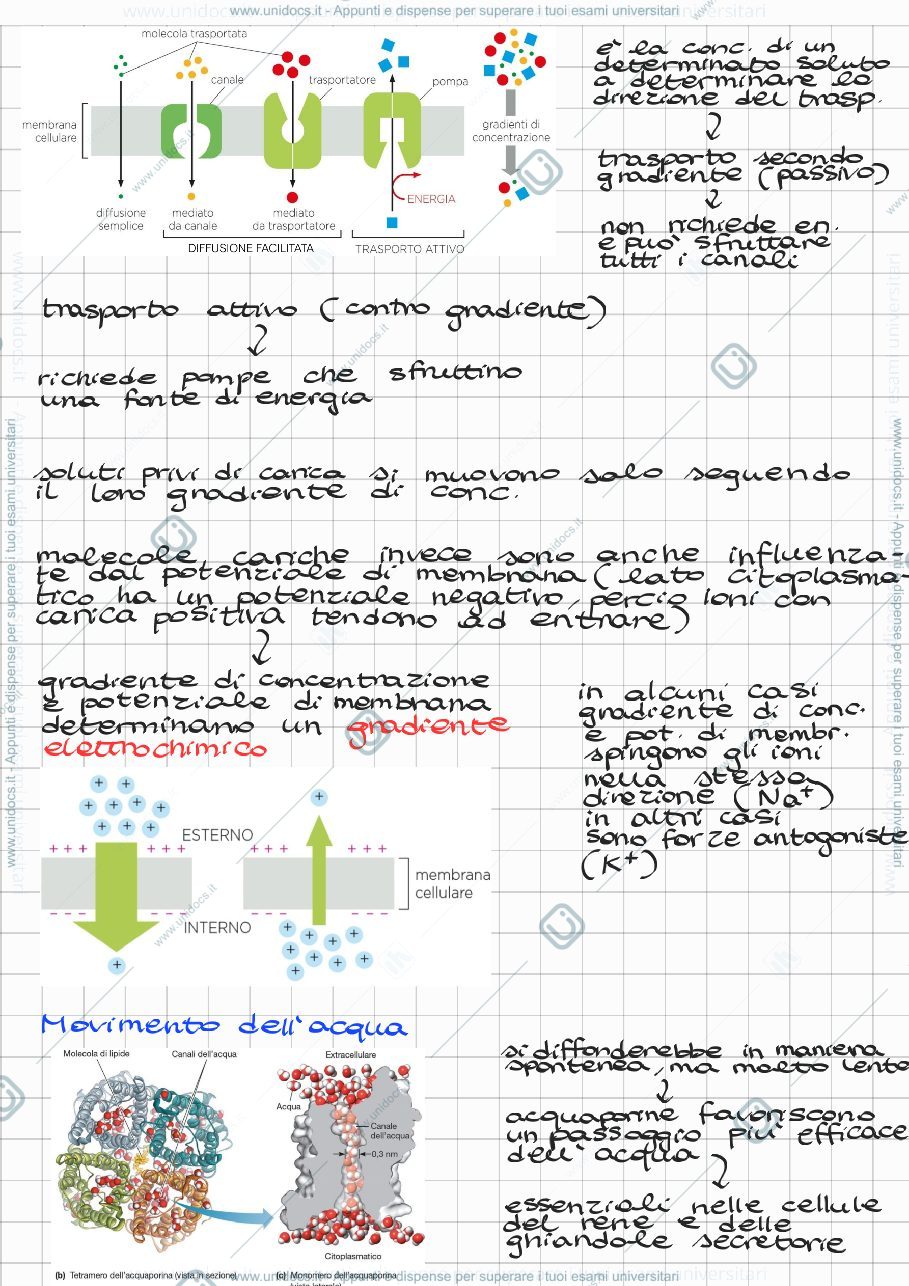 www.unidocs.it - Appunti e dispense per superare i tuoi esami universitari
molecola trasportata
canale
trasportatore
pompa
membrana
cellulare
gradienti di
concentrazione
ENERGIA
diffusione
semplice
mediato
da canale
mediato
da trasportatore
DIFFUSIONE FACILITATA
TRASPORTO ATTIVO
è la conc. di un
determinato soluto
a determinare la
direzione del trasp.
trasporto secondo
gradiente (passivo)
non richiede en.
e può sfruttare
tutti i canali
trasporto attivo (contro gradiente)
richiede pompe che sfruttino
una fonte di energia
soluti privi di carica si muovono solo seguendo
il loro gradiente di conc.
molecole cariche invece sono anche influenza-
te dal potenziale di membrana (lato citoplasma-
tico ha un potenziale negativo, perciò ioni con
carica positiva tendono ad entrare)
gradiente di concentrazione
e potenziale di membrana
determinano un gradiente
elettrochimico
in alcuni casi
gradiente di conc.
e pot. di membr.
spingono gli ioni
nella stessa
direzione (Na⁺)
in altri casi
sono forze antagoniste
(K⁺)
ESTERNO
membrana
cellulare
INTERNO
Movimento dell'acqua
Molecola di lipide
Canali dell'acqua
Extracellulare
Acqua
Canale
dell'acqua
0,3 nm
Citoplasmatico
(b) Tetramero dell'acquaporina (vista in sezione)
(c) Monomero dell'acquaporina
(vista laterale)
si diffonderebbe in maniera
spontanea, ma molto lento
acquaporine favoriscono
un passaggio più efficace
dell'acqua
essenziali nelle cellule
del rene e delle
ghiandole secretorie
www.unidocs.it - Appunti e dispense per superare i tuoi esami universitari